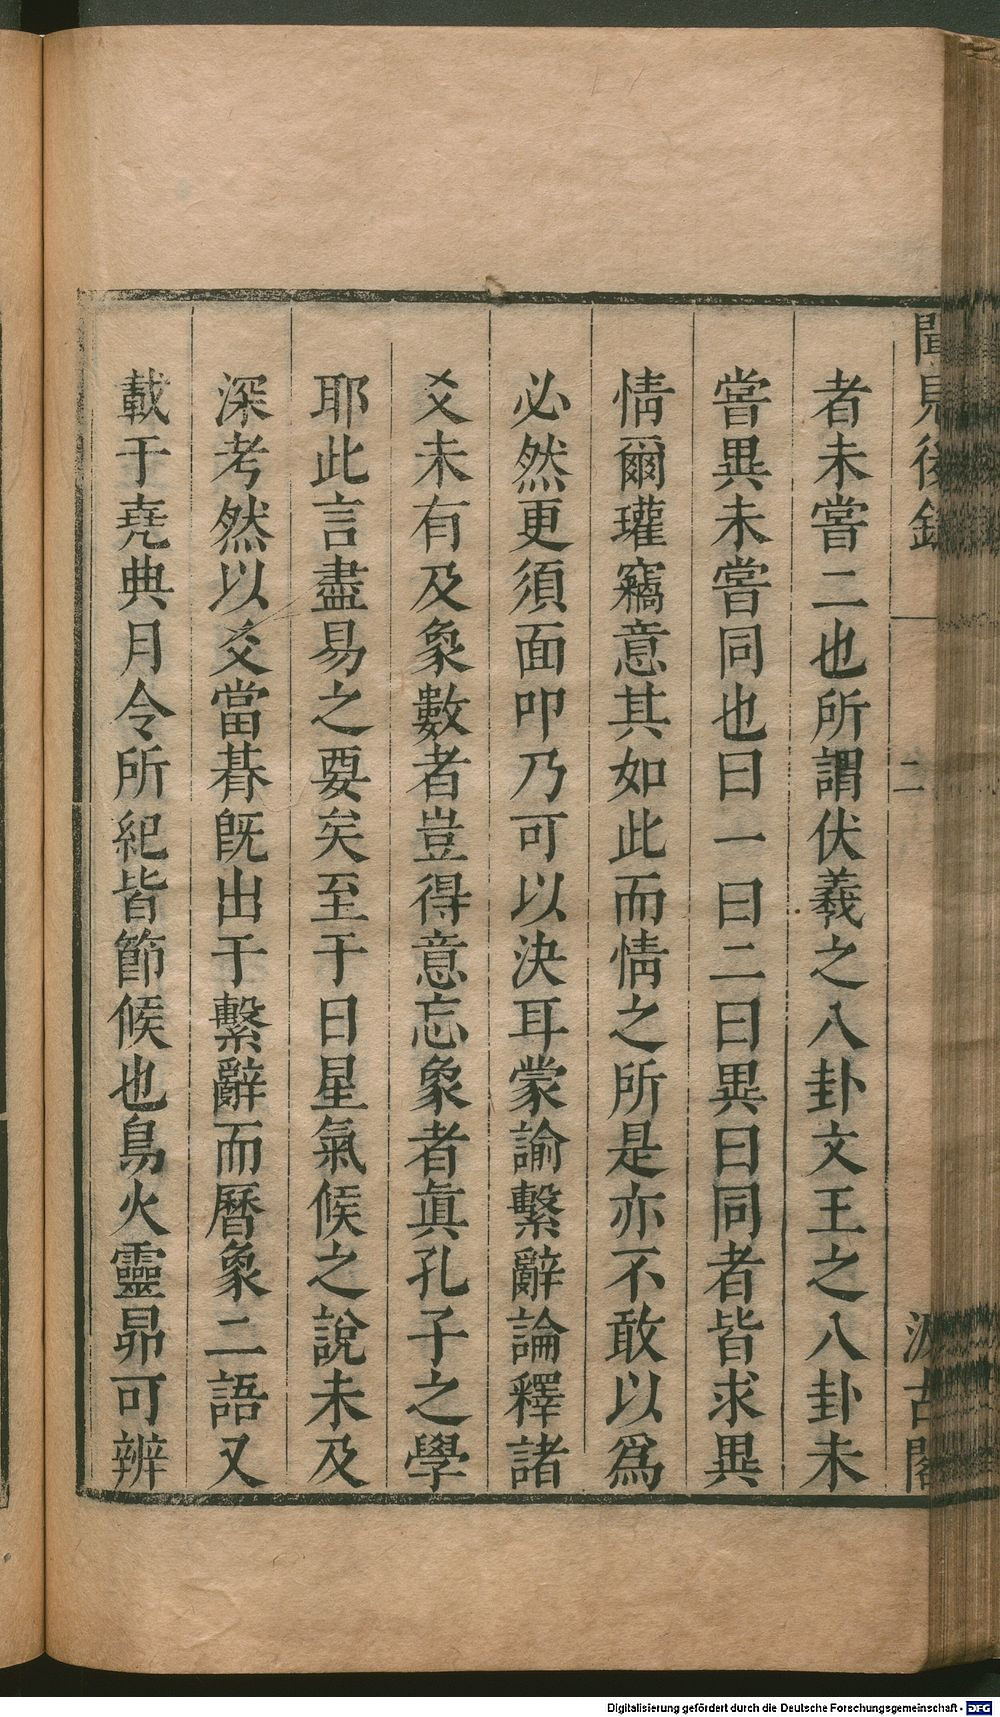 聞見後錄
二
汲古閣
者未嘗二也所謂伏羲之八卦文王之八卦未
嘗異未嘗同也曰一曰二曰異曰同者皆求異
情爾瓘竊意其如此而情之所是亦不敢以爲
必然更須面叩乃可以決耳蒙諭繫辭論釋諸
爻未有及象數者豈得意忘象者眞孔子之學
耶此言盡易之要矣至于日星氣候之說未及
深考然以爻當朞旣出于繫辭而曆象二語又
載于堯典月令所紀皆節候也鳥火靈昴可辨
Digitalisierung gefördert durch die Deutsche Forschungsgemeinschaft - DFG